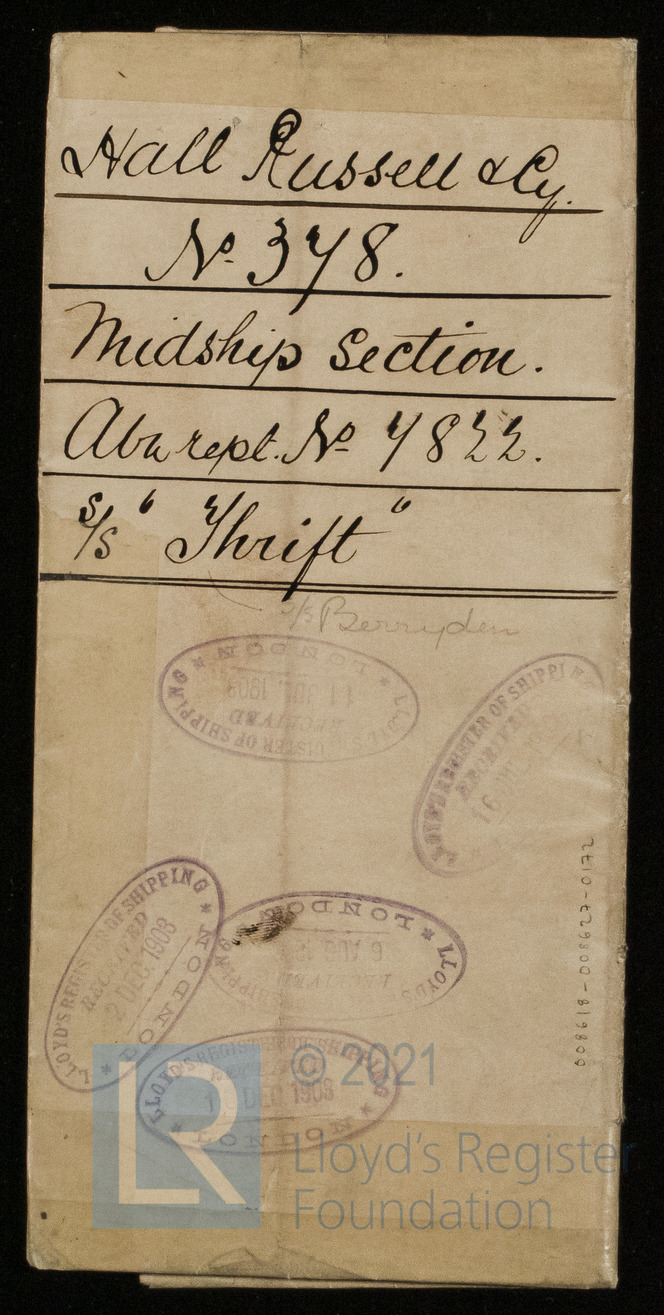 Hall Russell & Cy.
No. 378.
Midship Section.
Abn rept. No 7822.
S/S "Thrift"
S/S Berryden
LLOYD'S REGISTER OF SHIPPING
RECEIVED
11 1903
* LONDON *
LLOYD'S REGISTER OF SHIPPING
RECEIVED
16
LLOYD'S REGISTER OF SHIPPING
RECEIVED
2 DEC. 1903
* LONDON *
LLOYD'S SHIPPING
RECEIVED
6 AUG
* LONDON *
LLOYD'S REGISTER OF SHIPPING
DEC 1903
* LONDON *
008618-008627-0172
LR
© 2021
Lloyd's Register
Foundation